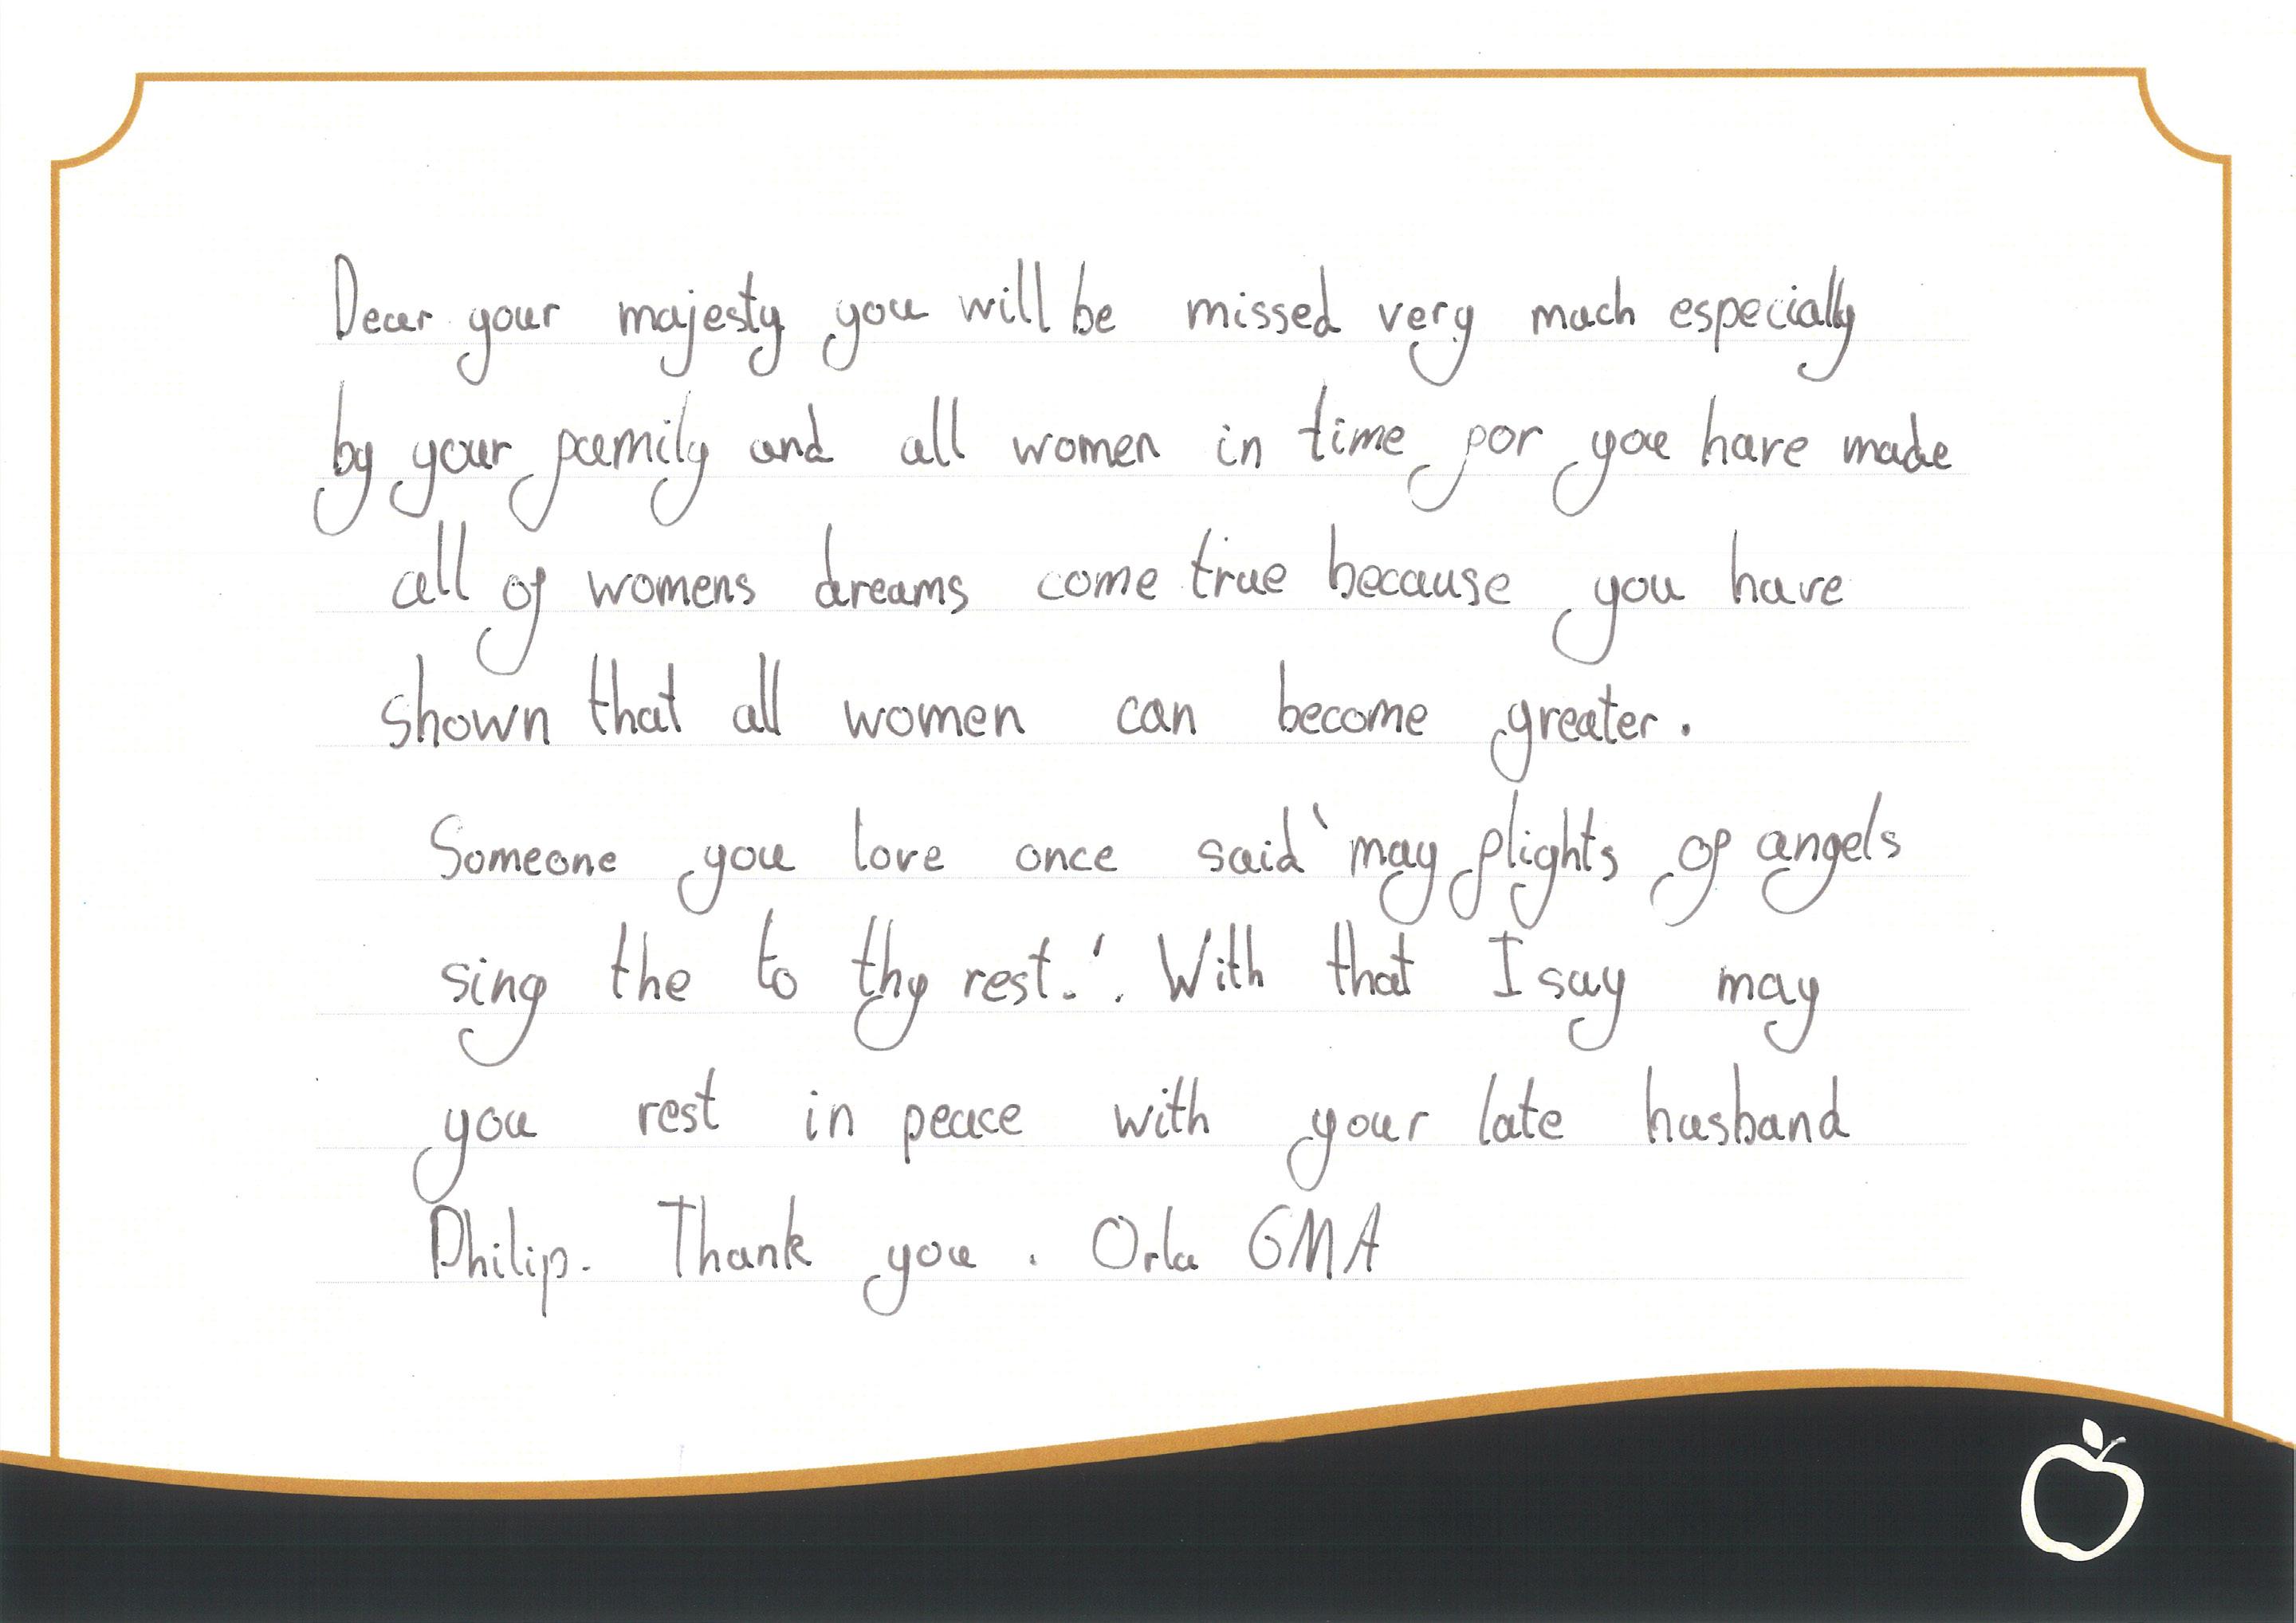 Dear your majesty you will be missed very much especially
by your family and all women in time for you have made
all of womens dreams come true because you have
shown that all women can become greater.
Someone you love once said 'may flights of angels
sing the to thy rest.'. With that I say may
you rest in peace with your late husband
Philip. Thank you. Orla 6MA